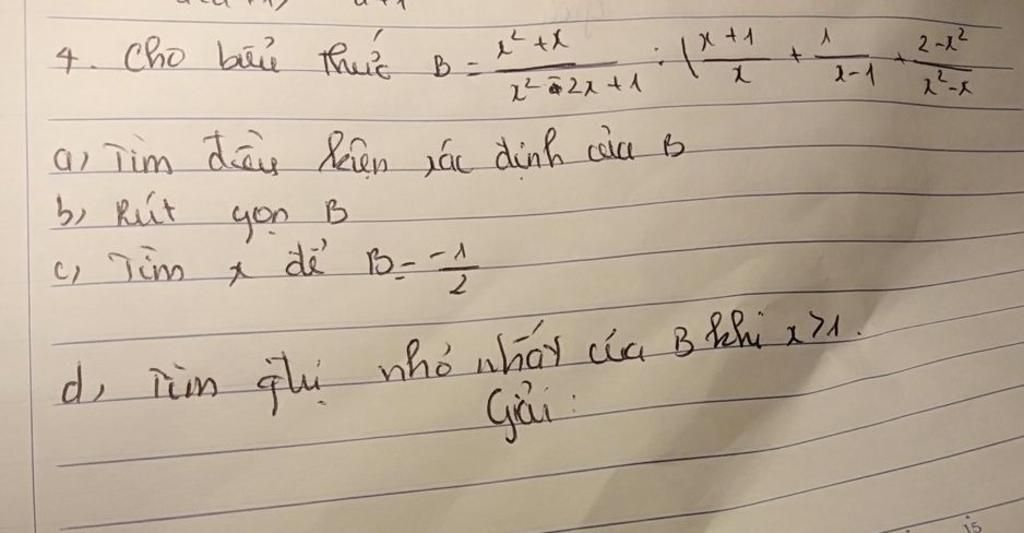 4. Cho biểu thức B = \frac{x^2+x}{x^2-2x+1} : (\frac{x+1}{x} + \frac{1}{x-1} + \frac{2-x^2}{x^2-x}
a, Tìm điều kiện xác định của B
b, Rút gọn B
c, Tìm x để B = \frac{-1}{2}
d, Tìm giá trị nhỏ nhất của B khi x>1.
Giải:
15